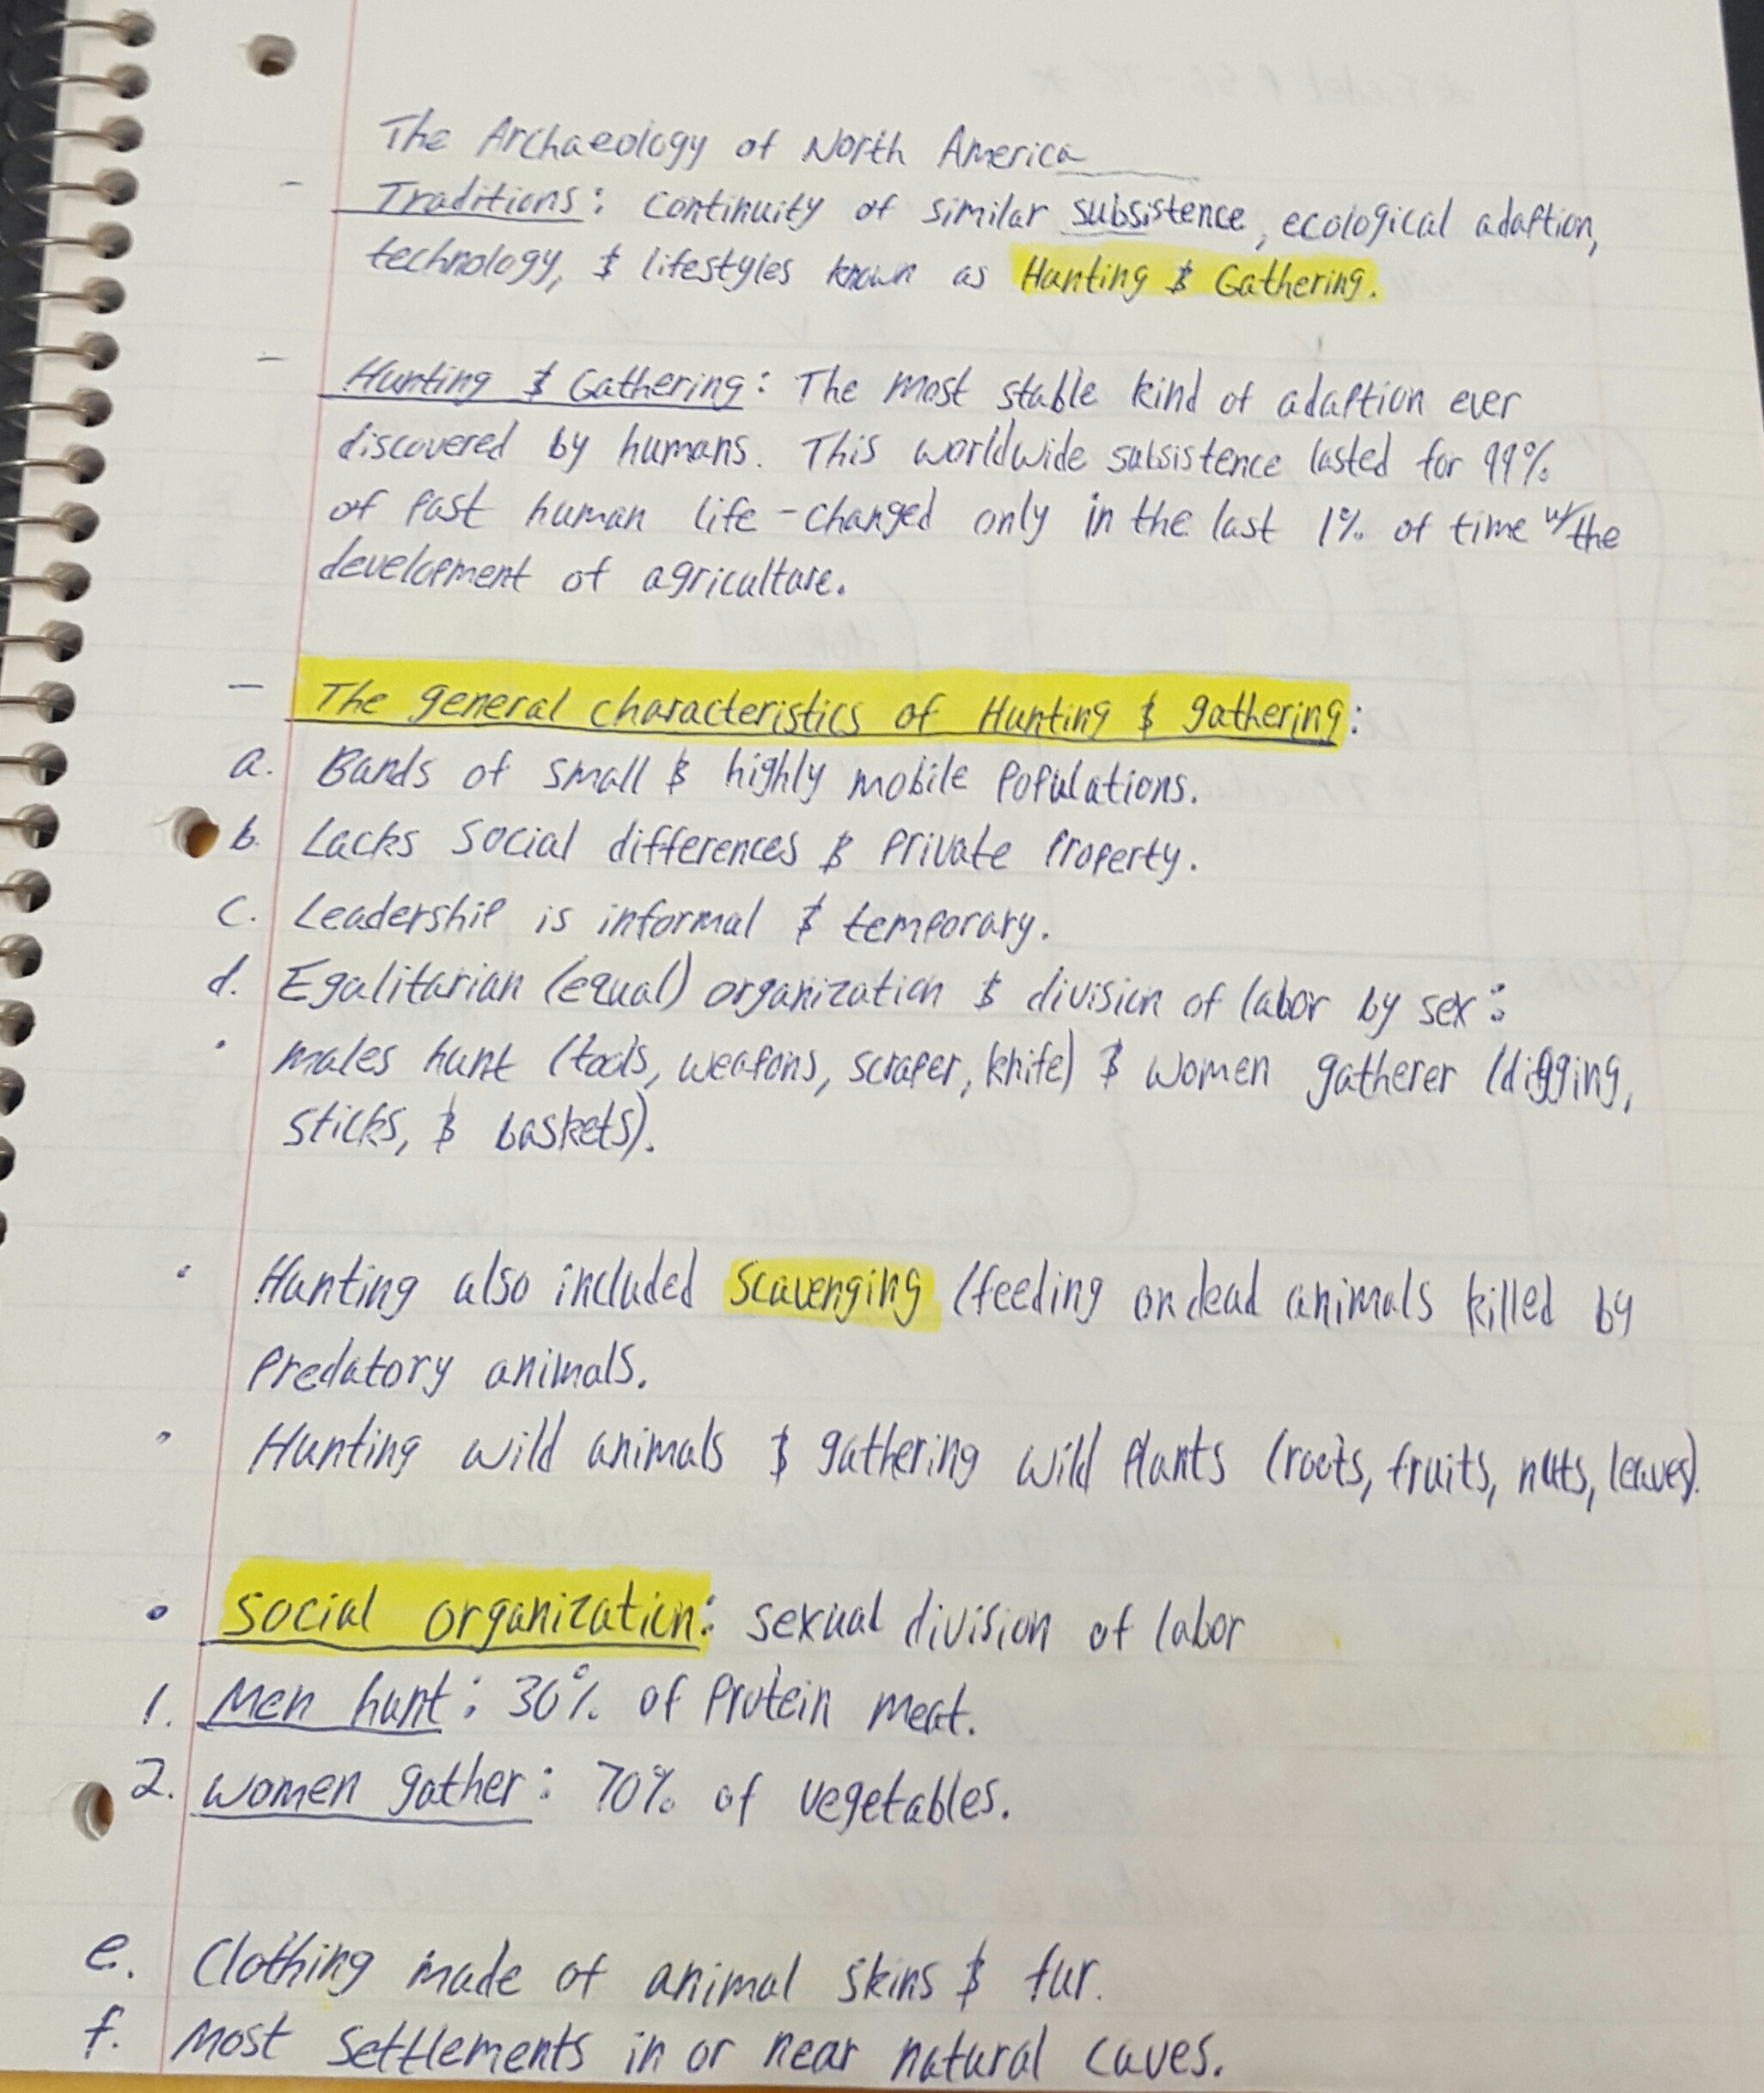 The Archaeology of North America
- Traditions: Continuity of similar subsistence, ecological adaption,
technology, & lifestyles known as Hunting & Gathering.
- Hunting & Gathering: The most stable kind of adaption ever
discovered by humans. This worldwide subsistence lasted for 99%
of past human life - changed only in the last 1% of time w/ the
development of agriculture.
- The general characteristics of Hunting & gathering:
a. Bands of small & highly mobile populations.
b. Lacks social differences & private property.
c. Leadership is informal & temporary.
d. Egalitarian (equal) organization & division of labor by sex:
• males hunt (tools, weapons, scraper, knife) & women gatherer (digging,
sticks, & baskets).
• Hunting also included scavenging (feeding on dead animals killed by
predatory animals.
• Hunting wild animals & gathering wild plants (roots, fruits, nuts, leaves).
• Social organization: sexual division of labor
1. Men hunt: 30% of protein meat.
2. Women gather: 70% of vegetables.
e. Clothing made of animal skins & fur.
f. Most settlements in or near natural caves.